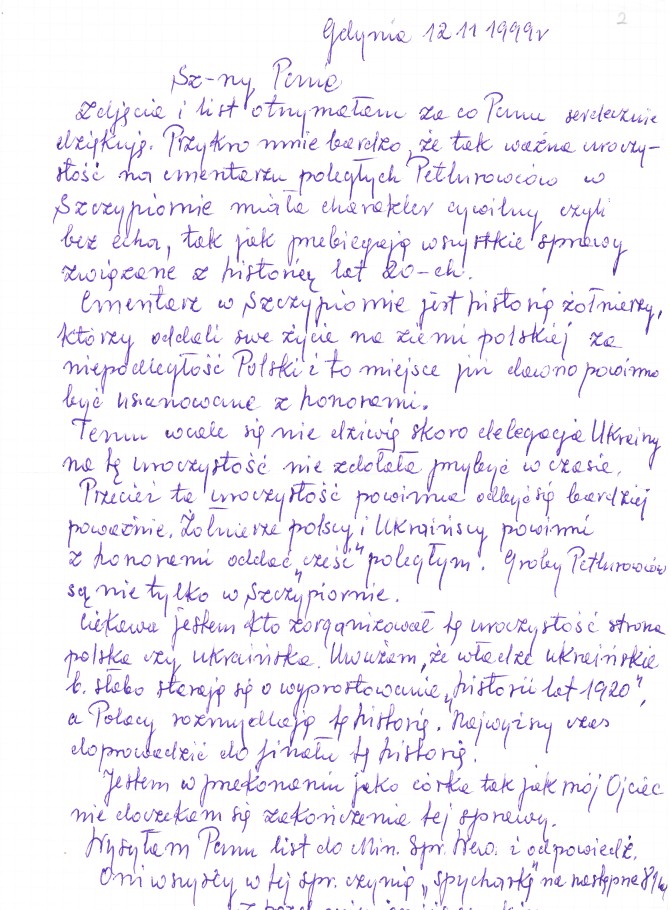 2
Gdynia 12 11 1999r
Sz-ny Panie
Zdjęcia i list otrzymałam za co Panu serdecznie
dziękuję. Przykro mnie bardzo, że tak ważna uroczy-
stość na cmentarzu poległych Petlurowców w
Szczypiornie miała charakter cywilny czyli
bez echa, tak jak przebiegają wszystkie sprawy
związane z historią lat 20-ch.
Cmentarz w Szczypiornie jest historią żołnierzy,
którzy oddali swe życie na ziemi polskiej za
niepodległość Polski i to miejsce już dawno powinno
być uszanowane z honorami.
Temu wcale się nie dziwię skoro delegacja Ukrainy
na tę uroczystość nie zdołała przybyć w czasie.
Przecież ta uroczystość powinna odbyć się bardziej
poważnie. Żołnierze polscy i Ukraińscy powinni
z honorami oddać „cześć" poległym. Groby Petlurowców
są nie tylko w Szczypiornie.
Ciekawa jestem kto zorganizował tę uroczystość strona
polska czy ukraińska. Uważam, że władze ukraińskie
b. słabo starają się o wyprostowanie „historii lat 1920",
a Polacy rozmydlają tę historię. Najwyższy czas
doprowadzić do finału tę historię.
Jestem w przekonaniu jako córka tak jak mój Ojciec
nie doczekam się zakończenia tej sprawy.
Wysyłam Panu list do Min. Spr. Wew. i odpowiedź.
Oni wszyscy w tej spr. czynią „spychankę" na następne